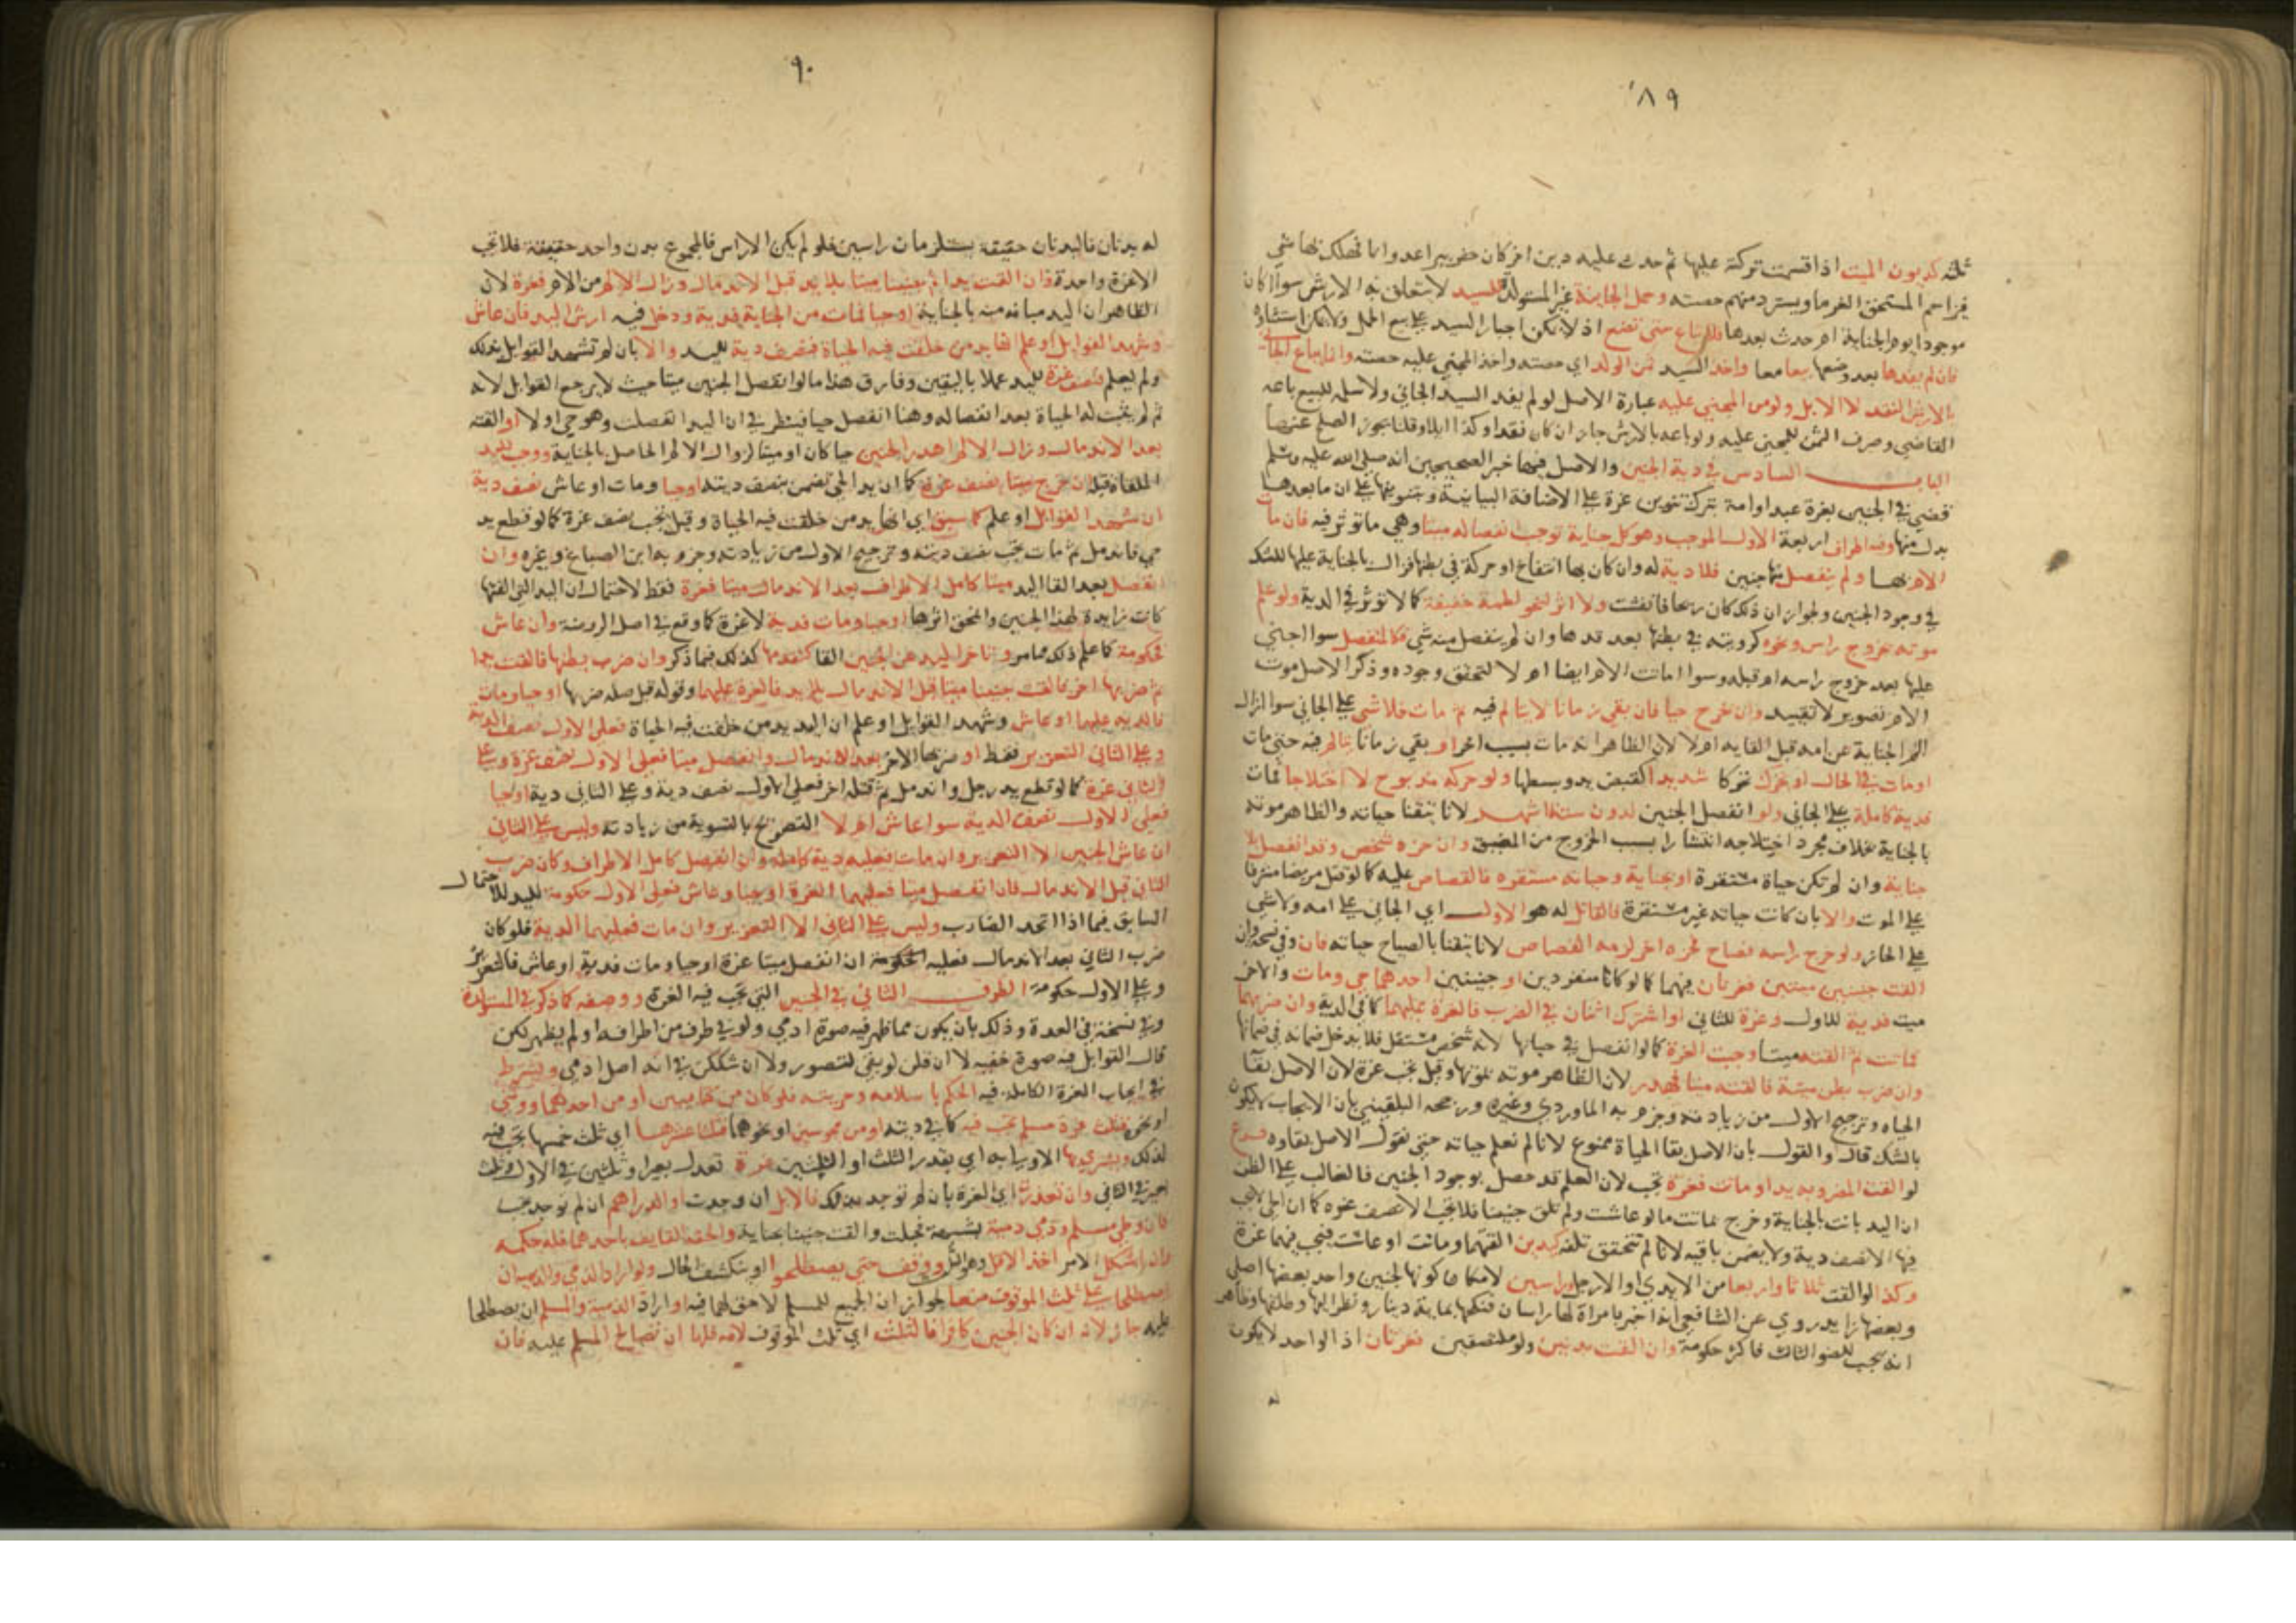 ٨٩
ثلثه كديون الميت اذا اقسمت تركته عليها ثم حدث عليه دين اخر كان حفر بيرا عدوانا فهلك بها شي
فزاحم المستحق الغرما ويسترد منهم حصته وحمل الجانية غير المستولدة للسيد لا يتعلق به الارش سوا اكان
موجودا يوم الجناية ام حدث بعدها فلا تباع حتى تضع اذ لا يمكن اجبار السيد على بيع الحمل ولا يمكن استثناؤه
فان لم يفدها بعد وضعها بيعا معا واخذ السيد ثمن الولد اي حصته واخذ المجني عليه حصته وانما يباع الجاني
بالارش النقد لا الابل ولو من المجني عليه عبارة الاصل لو لم يفد السيد الجاني ولا سلمه للبيع باعه
القاضي وصرف الثمن للمجني عليه ولو باعه بالارش جاز ان كان نقدا وكذا ابلا وقلنا بجوز الصلح عنها
الباب السادس في دية الجنين والاصل فيها خبر الصحيحين انه صلى الله عليه وسلم
قضى في الجنين بغرة عبد او امة بترك تنوين غرة على الاضافة البيانية وبتنوينها على ان ما بعدها
بدل منها وفيه اطراف اربعة الاول الموجب وهو كل جناية توجب انفصاله ميتا وهي ما توثر فيه فان ماتت
الام بها ولم ينفصل منها جنين فلا دية له وان كان بها انتفاخ او حركة في بطنها فزالت بالجناية عليها للشك
في وجود الجنين ولجواز ان ذلك كان ريحا فانفشت ولا اثر لنحو لطمة خفيفة كما لا توثر في الدية ولو علم
موته بخروج راس ونحوه كرويته في بطنها بعد قدها وان لم ينفصل منه شي فكالمنفصل سوا اجنى
عليها بعد خروج راسه ام قبله وسوا اماتت الام ايضا ام لا لتحقق وجوده وذكر الاصل موت
الام تصوير لا تقييد وان خرج حيا فان بقي زمانا لا يتالم فيه ثم مات فلا شي على الجاني سوا ازال
الم الجناية عن امه قبل القايه ام لا لان الظاهر انه مات بسبب اخر او بقي زمانا يتالم فيه حتى مات
او مات في الحال او تحرك تحركا شديدا كقبض يد وبسطها ولو حركة مذبوح لا اختلاجا فمات
فدية كاملة على الجاني ولو انفصل الجنين لدون ستة اشهر لانا تيقنا حياته والظاهر موته
بالجناية بخلاف مجرد اختلاجه انتشارا بسبب الخروج من المضيق وان حزه شخص وقد انفصل بلا
جناية وان لم تكن حياة مستقرة او بجناية وحياته مستقرة فالقصاص عليه كما لو قتل مريضا مشرفا
على الموت والا بان كانت حياته غير مستقرة فالقاتل له هو الاول اي الجاني على امه ولا شي
على الحاز ولو خرج راسه فصاح فحزه اخر لزمه القصاص لانا تيقنا بالصياح حياته فان وفي نسخة وان
القت جنينين ميتين فغرتان فيهما كما لو كانا منفردين او جنينين احدهما حي ومات والاخر
ميت فدية للاول وغرة للثاني او اشترك اثنان في الضرب فالغرة عليهما كما في الدية وان ضربهما
فماتت ثم القته ميتا وجبت الغرة كما لو انفصل في حياتها لانه شخص مستقل فلا يدخل ضمانه في ضمانها
وان ضرب بطن ميتة فالقته ميتا فهدر لان الظاهر موته بموتها وقيل تجب غرة لان الاصل بقآ
الحياه وترجيح الاول من زيادته وجزم به الماوردي وغيره ورجحه البلقيني بان الايجاب لا يكون
بالشك قال والقول بان الاصل بقا الحياة ممنوع لانا لم نعلم حياته حتى نقول الاصل بقاوه فرع
لو القت المضروبة يدا وماتت فغرة تجب لان العلم قد حصل بوجود الجنين فالغالب على الظن
ان اليد بانت بالجناية وخرج بماتت ما لو عاشت ولم تلق جنينا فلا تجب الا نصف غرة كما ان الحي لا تجب
فيها الا نصف دية ولا يضمن باقيه لانا لم نتحقق تلفه كيدين القتهما وماتت او عاشت فتجب فيهما غرة
وكذا لو القت ثلاثا واربعا من الايدي او الارجل وراسين لامكان كونها لجنين واحد بعضها اصلي
وبعضها زايد روي عن الشافعي انه اخبر بامراة لها راسان فنكحها بماية دينار ونظر اليها وطلقها وظاهر
انه يجب للعضو الثالث فاكثر حكومة وان القت بدنين ولو ملتصقين فغرتان اذ الواحد لا يكون
له
٩٠
له بدنان فالبدنان حقيقة يستلزمان راسين فلو لم يكن الا راس فالمجموع بدن واحد حقيقة فلا تجب
الا غرة واحدة وان القت يدا ثم جنينا ميتا بلا يد قبل الاندمال وزال الالم من الام فغرة لان
الظاهر ان اليد مبانه منه بالجناية او حيا فمات من الجناية فدية ودخل فيه ارش اليد فان عاش
وشهد القوابل او علم انها يد من خلقت فيه الحياة فنصف دية لليد والا بان لم تشهد القوابل بذلك
ولم يعلم فنصف غرة لليد عملا باليقين وفارق هذا ما لو انفصل الجنين ميتا حيث لا يرجع القوابل لانه
ثم لم يثبت له الحياة بعد انفصاله وهنا انفصل حيا فينظر في ان اليد انفصلت وهو حي او لا او القته
بعد الاندمال وزال الالم اهدر الجنين حيا كان او ميتا لزوال الالم الحاصل بالجناية ووجب لليد
الملقاة قبله ان خرج ميتا نصف غرة كما ان يد الحي تضمن بنصف ديته او حيا ومات او عاش نصف دية
ان شهد القوابل او علم كما سبق اي انها يد من خلقت فيه الحياة وقيل تجب نصف غرة كما لو قطع يد
حي فاندمل ثم مات تجب نصف ديته وترجيح الاول من زيادته وجزم به ابن الصباغ وغيره وان
انفصل بعد القا اليد ميتا كامل الاطراف بعد الاندمال ميتا فغرة فقط لاحتمال ان اليد التي القتها
كانت زايدة لهذا الجنين وانمحق اثرها او حيا ومات فدية لا غرة كما وقع في اصل الروضة وان عاش
فحكومة كما علم ذلك مما مر وتاخر اليد عن الجنين القا كتقدمها كذلك فيما ذكر وان ضرب بطنها فالقت يدا
ثم ضربها اخر فالقت جنينا ميتا قبل الاندمال بلا يد فالغرة عليهما وقوله قبل صلة ضربها او حيا ومات
فالدية عليهما او عاش وشهد القوابل او علم ان اليد يد من خلقت فيه الحياة فعلى الاول نصف الدية
وعلى الثاني التعزير فقط او ضربها الاخر بعد الاندمال وانفصل ميتا فعلى الاول نصف غرة وعلى
الثاني غرة كما لو قطع يد رجل واندمل ثم قتله اخر فعلى الاول نصف دية وعلى الثاني دية او حيا
فعلى الاول نصف الدية سوا عاش ام لا التصريح بالتسوية من زيادته وليس على الثاني
ان عاش الجنين الا التعزير وان مات فعليه دية كاملة وان انفصل كامل الاطراف وكان ضرب
الثاني قبل الاندمال فان انفصل ميتا فعليهما الغرة او حيا وعاش فعلى الاول حكومة لليد للاحتمال
السابق فيما اذا اتحد الضارب وليس على الثاني الا التعزير وان مات فعليهما الدية فلو كان
ضرب الثاني بعد الاندمال فعليه الحكومة ان انفصل ميتا غرة او حيا ومات فدية او عاش فالتعزير
وعلى الاول حكومة الطرف الثاني في الجنين التي تجب فيه الغرة ووصفه كما ذكر في المستولدة
وفي نسخة في العدة وذلك بان يكون مما ظهر فيه صورة ادمي ولو في طرف من اطرافه او لم يظهر لكن
قال القوابل فيه صورة خفيه لا ان قلن لو بقي لتصور ولا ان شككن في انه اصل ادمي ويشترط
في ايجاب الغرة الكاملة فيه الحكم باسلامه وحريته فلو كان من كتابيين او من احدهما ووثني
او نحوه فثلث غرة مسلم تجب فيه كما في ديته او من مجوسيين او نحوهما فثلث عشرها اي ثلث خمسها تجب فيه
لذلك ويشتري بها الاوليا به اي بقدر الثلث او الثلثين غرة تعدل بعيرا وثلثين في الاول وثلث
بعير في الثاني وان تعذرت اي الغرة بان لم توجد بذلك فالابل ان وجدت او الدراهم ان لم توجد تجب
فان وطي مسلم وذمي ذمية بشبهة فحبلت والقت جنينا بجناية والحقه القايف باحدهما فله حكمه
وان اشكل الامر اخذ الاقل وهو الثلث ووقف حتى يصطلحوا او ينكشف الحال ولو اراد الذمي والذميه ان
يصطلحا على ثلث الموقوف منعا لجواز ان الجميع للمسلم لا حق لهما فيه او اراد الذمية والمسلم ان يصطلحا
عليه جاز لانه ان كان الجنين كافرا فالثلث اي ثلث الموقوف لامه فلها ان تصالح المسلم عليه فان